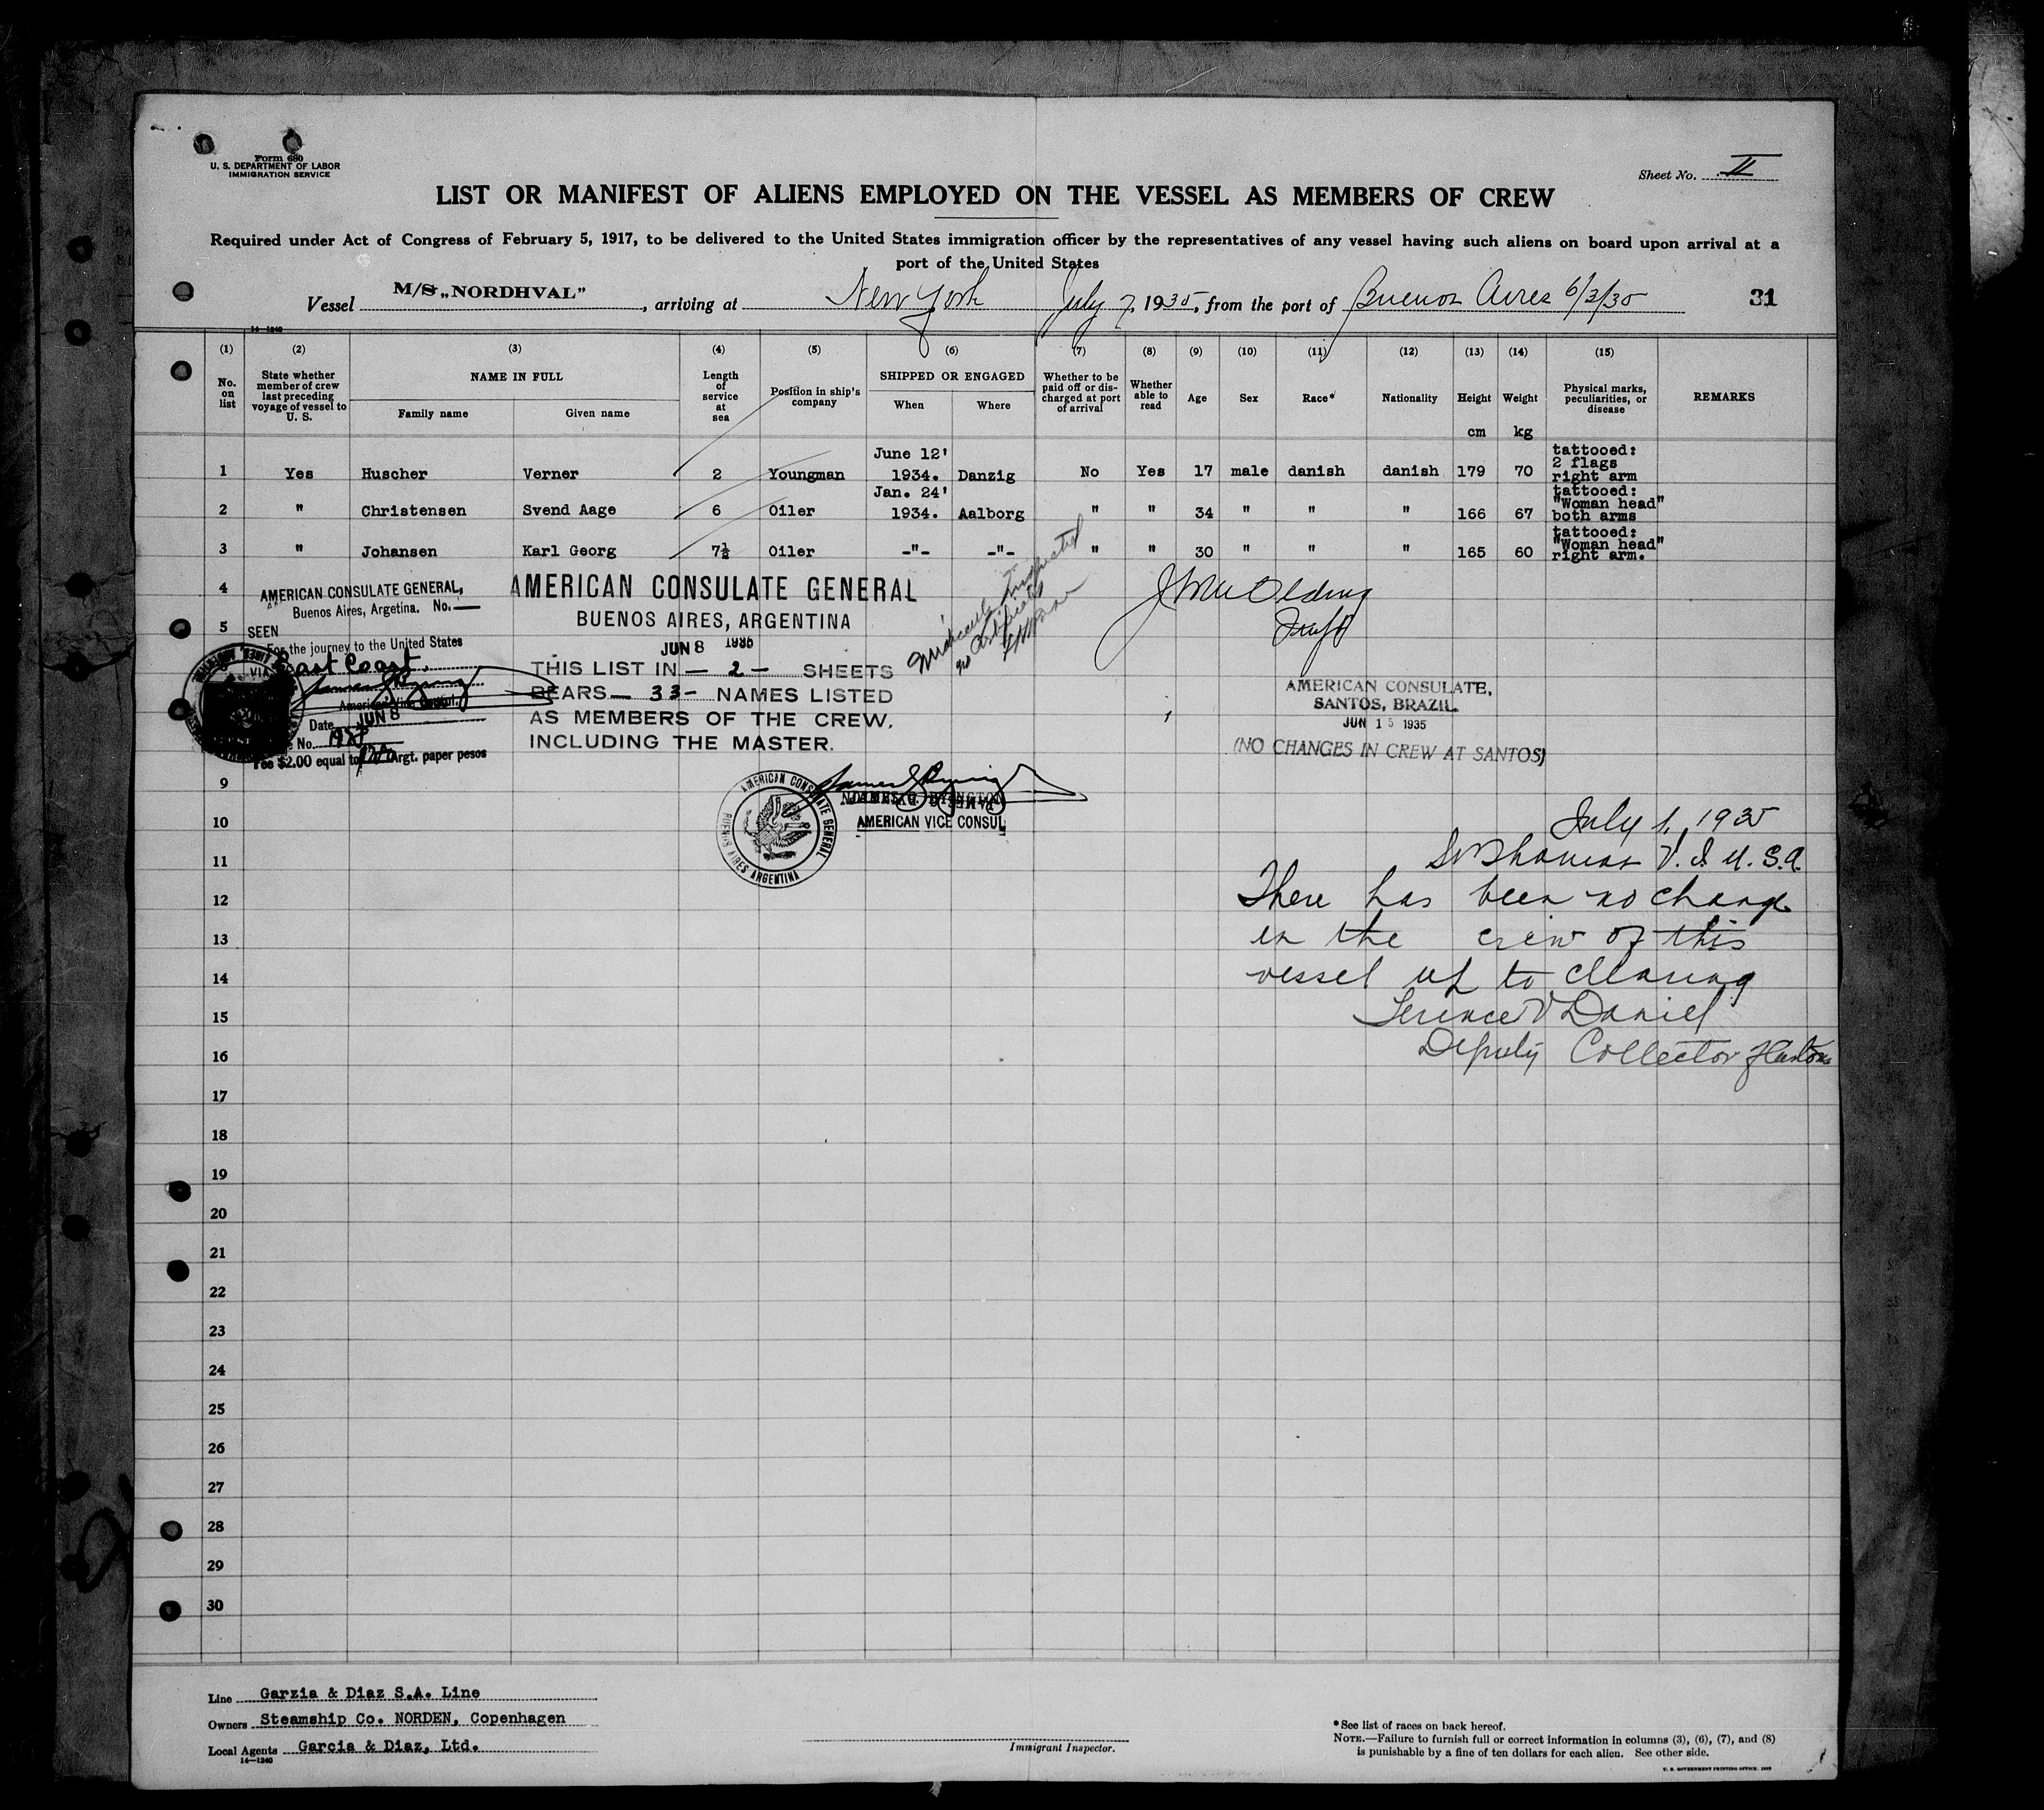 Form 680
U. S. DEPARTMENT OF LABOR
IMMIGRATION SERVICE
Sheet No. II
LIST OR MANIFEST OF ALIENS EMPLOYED ON THE VESSEL AS MEMBERS OF CREW
Required under Act of Congress of February 5, 1917, to be delivered to the United States immigration officer by the representatives of any vessel having such aliens on board upon arrival at a
port of the United States
Vessel M/S „NORDHVAL”, arriving at New York July 7, 1935, from the port of Buenos Aires 31
14—1240
(1) (2) (3) (4) (5) (6) (7) (8) (9) (10) (11) (12) (13) (14) (15)
No. on list State whether member of crew last preceding voyage of vessel to U. S. NAME IN FULL Family name Given name Length of service at sea Position in ship's company SHIPPED OR ENGAGED When Where Whether to be paid off or discharged at port of arrival Whether able to read Age Sex Race* Nationality Height Weight Physical marks, peculiarities, or disease REMARKS
cm kg
1 Yes Huscher Verner 2 Youngman June 12' 1934. Danzig No Yes 17 male danish danish 179 70 tattooed: 2 flags right arm
2 " Christensen Svend Aage 6 Oiler Jan. 24' 1934. Aalborg " " 34 " " " 166 67 tattooed: "Woman head" both arms
3 " Johansen Karl Georg 7½ Oiler -"- -"- " " 30 " " " 165 60 tattooed: "Woman head" right arm.
4
5
AMERICAN CONSULATE GENERAL,
Buenos Aires, Argetina. No.—
SEEN
For the journey to the United States
VIA East Coast
American Vice Consul.
Date JUN 8
No.
Fee $2.00 equal to Argt. paper pesos
AMERICAN CONSULATE GENERAL
BUENOS AIRES, ARGENTINA
JUN 8 1935
THIS LIST IN — 2 — SHEETS
BEARS — 33 — NAMES LISTED
AS MEMBERS OF THE CREW,
INCLUDING THE MASTER.
AMERICAN VICE CONSUL
AMERICAN CONSULATE GENERAL
BUENOS AIRES ARGENTINA
AMERICAN CONSULATE,
SANTOS, BRAZIL.
JUN 15 1935
(NO CHANGES IN CREW AT SANTOS)
July 1, 1935
St Thomas V. I. U. S. A.
There has been no change
in the crew of this
vessel up to clearing
Terence V Daniel
Deputy Collector
9
10
11
12
13
14
15
16
17
18
19
20
21
22
23
24
25
26
27
28
29
30
Line Garzia & Diaz S.A. Line
Owners Steamship Co. NORDEN, Copenhagen
Local Agents Garcia & Diaz, Ltd.
14—1240
Immigrant Inspector.
*See list of races on back hereof.
NOTE.—Failure to furnish full or correct information in columns (3), (6), (7), and (8)
is punishable by a fine of ten dollars for each alien. See other side.
U. S. GOVERNMENT PRINTING OFFICE